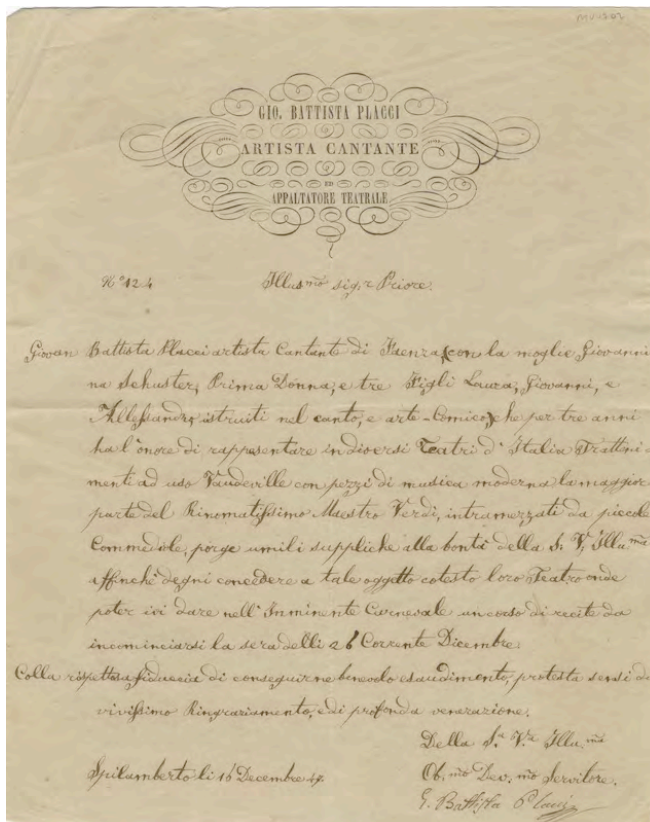 GIO. BATTISTA PLACCI
ARTISTA CANTANTE
ED
APPALTATORE TEATRALE
N° 124 Illus.mo sig.r Priore.
Giovan Battista Placci artista Cantante di Faenza, (con la moglie Giovanni
na Schuster, Prima Donna, e tre Figli Laura, Giovanni, e
Allessandro istruiti nel canto, e arte-Comico) che per tre anni
ha l'onore di rappresentare in diversi Teatri d'Italia Tratteni
menti ad uso Vaudeville con pezzi di musica moderna la maggior
parte del Rinomatissimo Maestro Verdi, intramezzati da piccole
Commediole, porge umili suppliche alla bontà della S. V. Illu.ma
affinchè degni concedere a tale oggetto cotesto loro Teatro onde
poter ivi dare nell'Imminente Carnevale un corso di recite da
incominciarsi la sera delli 26 Corrente Dicembre.
Colla rispettosa fiduccia di conseguirne benevolo esaudimento, protesta sensi di
vivissimo Ringraziamento, e di profonda venerazione.
Della S.a V.a Illu.ma
Spilamberto li 16 Decembre 49. Ob.mo Dev.mo Servitore.
G. Battista Placci